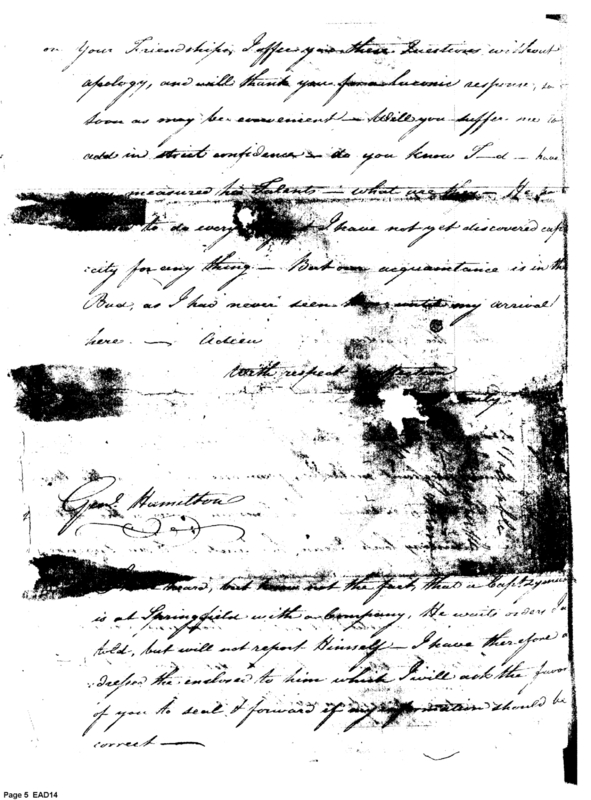 on your Friendship, I offer you these Questions without
apology, and will thank you for a laconic response, so
soon as may be convenient – Will you suffer me to
add in strict confidence – do you know T–d – have
measured his Talents – what are they – He
to do every I have not yet discovered capa
:city for any thing – But our acquaintance is in the
Bud, as I had never seen until my arrival
here. – Adieu
With respect
Genl Hamilton
heard, but know not the fact, that a Capt
is at Springfield with a Company, He waits orders
told, but will not report Himself – I have therefore a
:dressed the enclosed to him which I will ask the favor
of you to seal & forward if my information should be
correct –
Page 5 EAD14